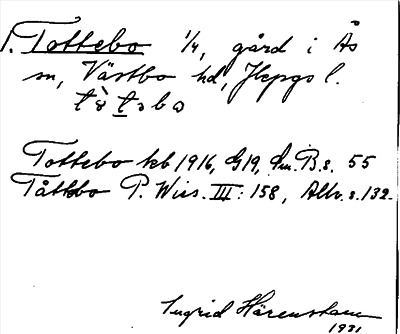 1. Tottebo 1/4, gård i Ås
sn, Västbo hd, Jkpgs l.
Tottebo kb 1916, G19, Lm. B. s. 55
P. Wies. III: 158, Allv. s. 132.
Ingrid Härenstam
1931